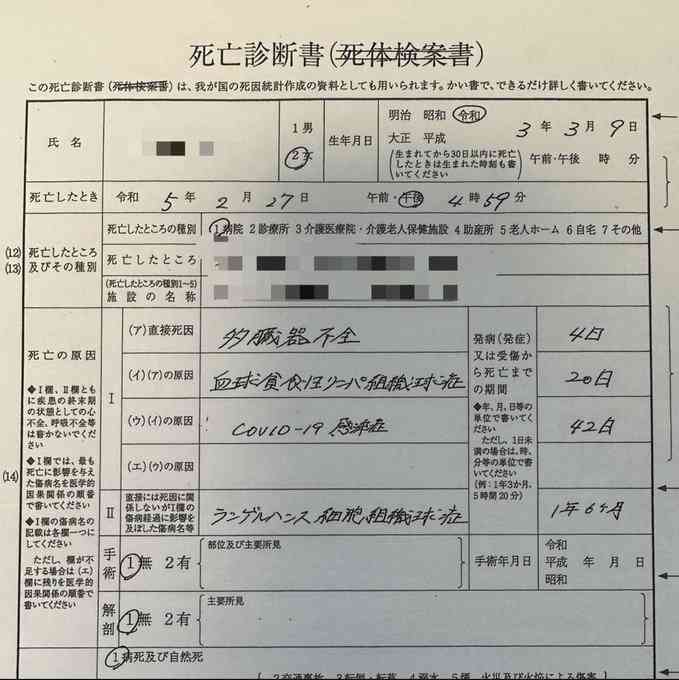 死亡診断書(死体検案書)
この死亡診断書(死体検案書)は、我が国の死因統計作成の資料としても用いられます。かい書で、できるだけ詳しく書いてください。
氏名
1男
2女
生年月日
明治 昭和 令和
大正 平成
3年3月9日
(生まれてから30日以内に死亡したときは生まれた時刻も書いてください)
午前・午後 時 分
死亡したとき
令和 5年 2月 27日 午前・午後 4時59分
(12)
(13)
死亡したところ及びその種別
死亡したところの種別
1病院 2診療所 3介護医療院・介護老人保健施設 4助産所 5老人ホーム 6自宅 7その他
死亡したところ
(死亡したところの種別1~5)
施設の名称
(14)
死亡の原因
◆Ⅰ欄、Ⅱ欄ともに疾患の終末期の状態としての心不全、呼吸不全等は書かないでください
◆Ⅰ欄では、最も死亡に影響を与えた傷病名を医学的因果関係の順番で書いてください
◆Ⅰ欄の傷病名の記載は各欄一つにしてください
ただし、欄が不足する場合は(エ)欄に残りを医学的因果関係の順番で書いてください
Ⅰ
(ア)直接死因
多臓器不全
(イ)(ア)の原因
血球貪食性リンパ組織球症
(ウ)(イ)の原因
COVID-19 感染症
(エ)(ウ)の原因
発病(発症)又は受傷から死亡までの期間
◆年、月、日等の単位で書いてください
ただし、1日未満の場合は、時、分等の単位で書いてください
(例:1年3か月、5時間20分)
4日
20日
42日
Ⅱ
直接には死因に関係しないがⅠ欄の傷病経過に影響を及ぼした傷病名等
ランゲルハンス細胞組織球症
1年6ヶ月
手術
1無 2有
部位及び主要所見
手術年月日
令和
平成 年 月 日
昭和
解剖
1無 2有
主要所見
1病死及び自然死